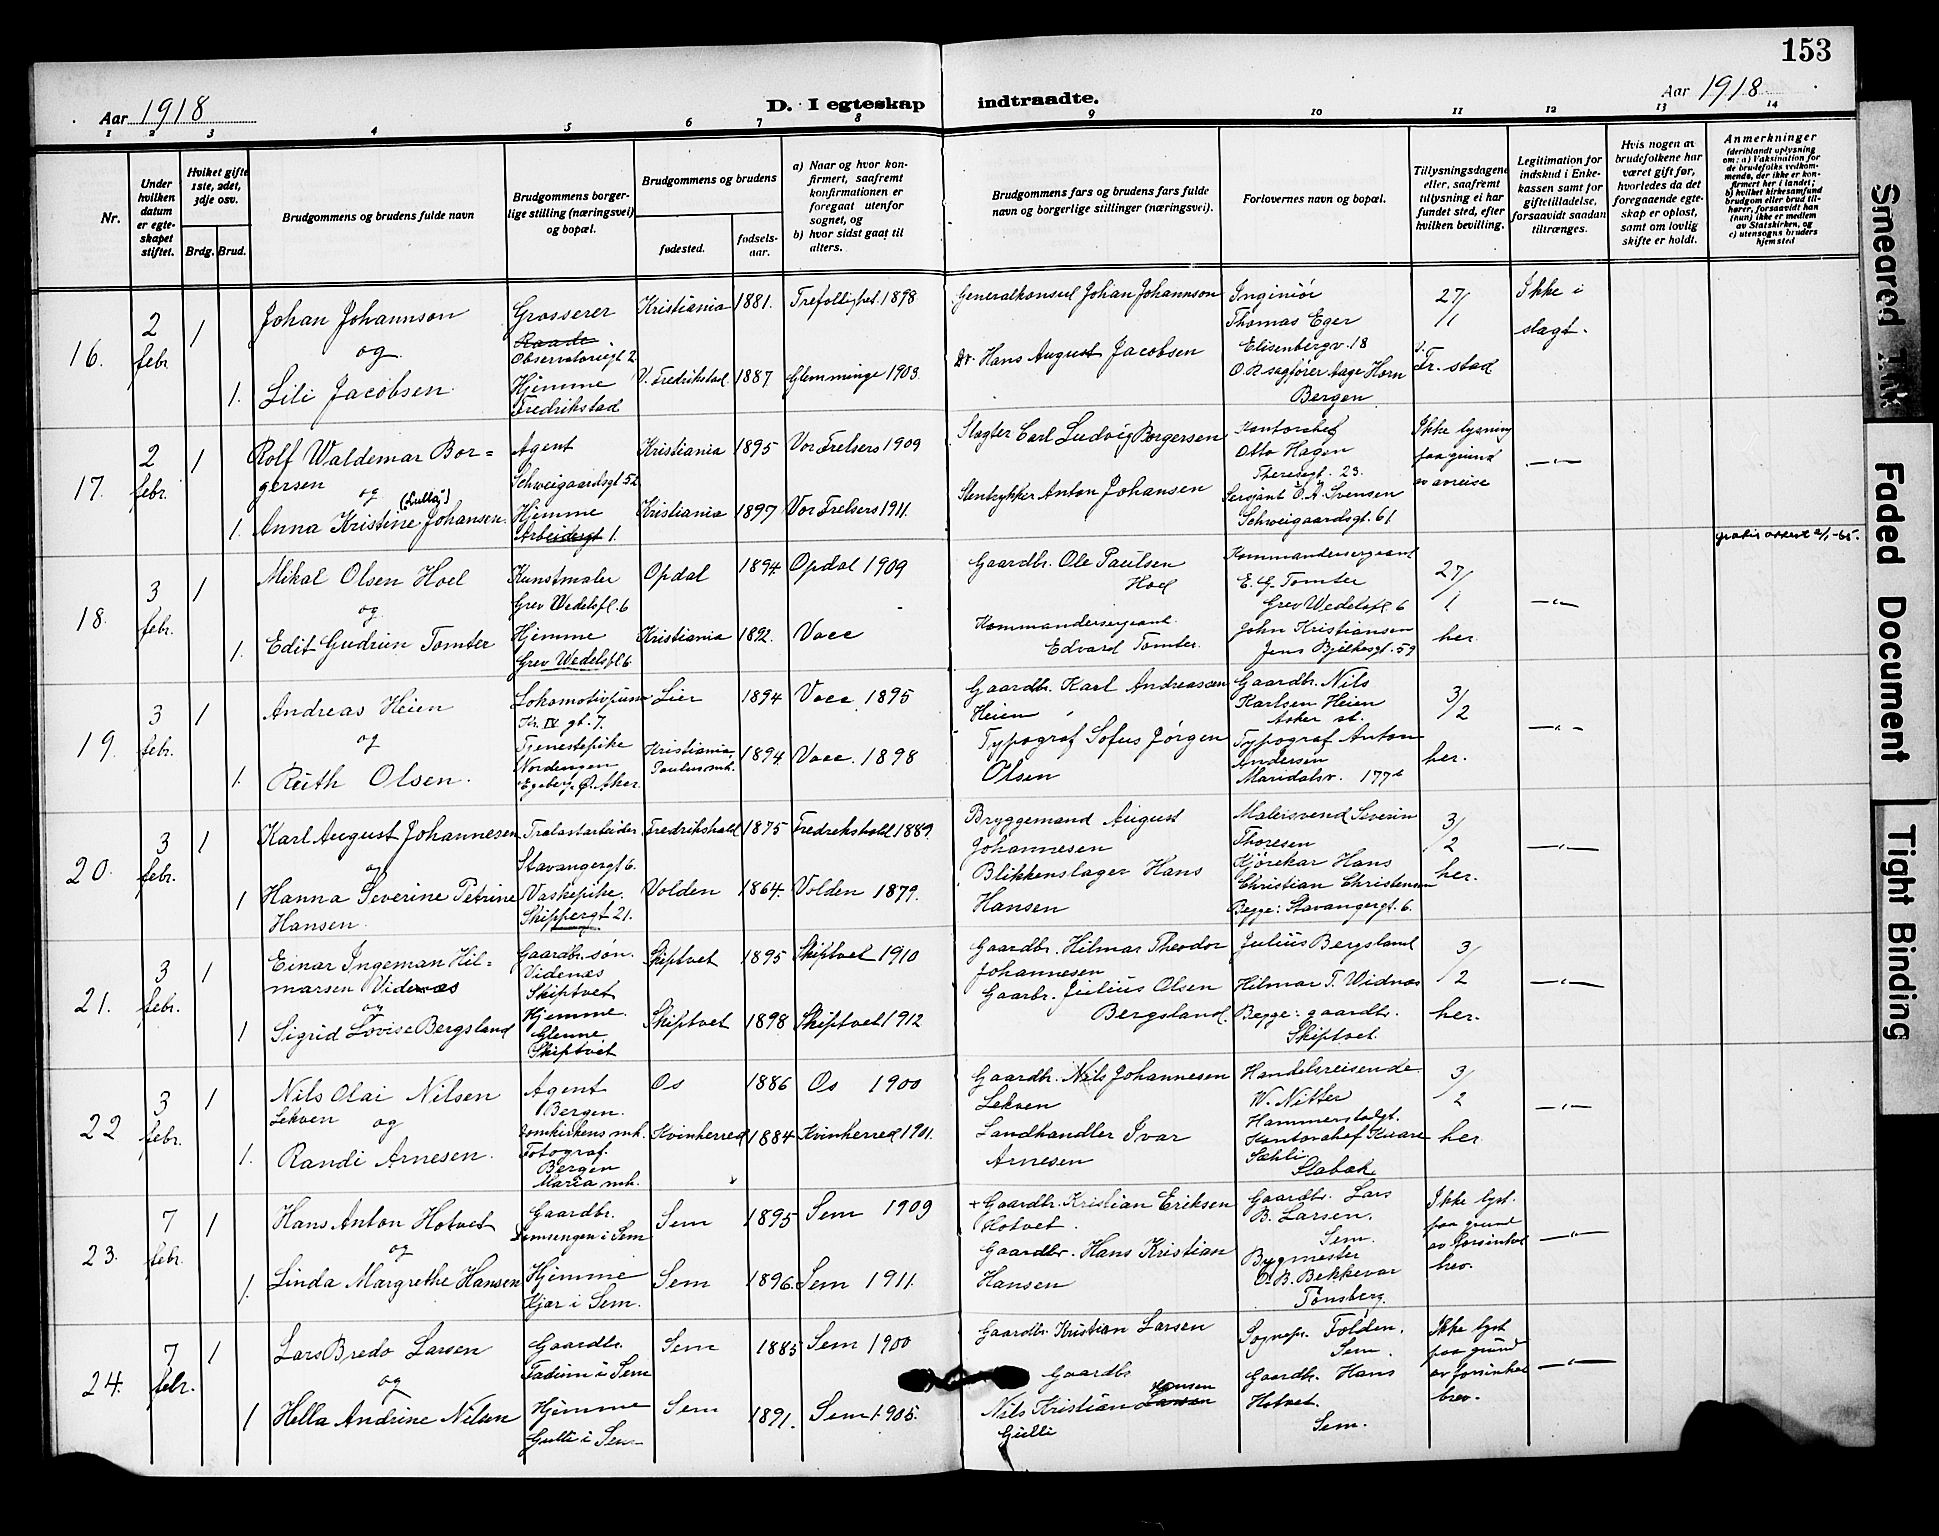 153
Aar 1918
D. I egteskap indtraadte.
Aar 1918
1 2 3 4 5 6 7 8 9 10 11 12 13 14
Nr.
Under hvilken datum er egteskapet stiftet.
Hvilket gifte 1ste, 2det, 3dje osv.
Brdg. Brud.
Brudgommens og brudens fulde navn
Brudgommens borgerlige stilling (næringsvei) og bopæl.
Brudgommens og brudens
fødested.
fødselsaar.
a) Naar og hvor konfirmert, saafremt konfirmationen er foregaat utenfor sognet, og
b) hvor sidst gaat til alters.
Brudgommens fars og brudens fars fulde navn og borgerlige stillinger (næringsvei).
Forlovernes navn og bopæl.
Tillysningsdagene eller, saafremt tillysning ei har fundet sted, efter hvilken bevilling.
Legitimation for indskud i Enkekassen samt for giftetilladelse, forsaavidt saadan tiltrænges.
Hvis nogen av brudefolkene har været gift før, hvorledes da det foregaaende egteskap er opløst, samt om lovlig skifte er holdt.
Anmerkninger
(deriblandt oplysning om: a) Vaksination for de brudefolks vedkommende, der ikke er konfirmert her i landet; b) hvilket kirkesamfund brudgom eller brud tilhører, forsaavidt han (hun) ikke er medlem av Statskirken, og c) utensogns bruders hjemsted
16.
2 febr.
1
Johan Johannson
og
1.
Lili Jacobsen.
Grosserer
Observatoriegt 2
Hjemme
Fredrikstad
Kristiania 1881. Trefoldighet. 1898
V. Fredrikstad 1887 Glemminge 1903.
Generalkonsul Johan Johannson
Dr. Hans August Jacobsen
Ingeniør
Thomas Eger
Elisenbergv. 18
O.R. sagfører Aage Horn
Bergen
27/1
Fr. stad
Ikke i
slagt.
17.
2 febr.
1
Rolf Waldemar Bor=
gersen
og
("Lulla")
1.
Anna Kristine Johansen.
Agent
Schweigaardsgt 52
Hjemme
Arbeidergt 1.
Kristiania 1895 Vor Frelsers 1909
Kristiania 1897 Vor Frelsers 1911.
Slagter Carl Ludvig Borgersen
Stentrykker Anton Johansen
Kontorchef
Otto Hagen
Theresegt. 23.
Sersjant O. A. Svensen
Schweigaardsgt. 61
Ikke lysning
paa grund
av avreise
—"—
18.
3 febr.
1
Mikal Olsen Hoel
og
1.
Edit Gudrun Tomter
Kunstmaler
Grev Wedelspl. 6
Hjemme
Grev Wedelspl 6
Opdal 1894. Opdal 1909
Kristiania 1892. Vacc
Gaardbr. Ole Paulsen
Hoel
Kommandersergeant.
Edvard Tomter.
Kommandersergeant
E. G. Tomter
Grev Wedelspl. 6
John Kristiansen
Jens Bjelkesgt. 59
27/1
her.
—"—
19.
3 febr.
1
Andreas Heien
og
1.
Ruth Olsen.
Kr. IV gt. 7.
Tjenestepike
Nordengen
Lier 1894 Vacc. 1895
Kristiania
Paulus mh. 1894. Vacc. 1898
Gaardbr. Karl Andreassen
Heien
Typograf Sofus Jørgen
Olsen
Gaardbr. Nils
Karlsen Heien
Asker st.
Typograf Anton
Andersen
Maridalsv. 177
3/2
her.
—"—
20.
3 febr.
1
Karl August Johannesen
og
1
Hanna Severine Petrine
Hansen.
Stavangergt 6.
Vaskepike.
Skippergt 21.
Fredrikshald 1875 Fredrikshald 1889.
Volden 1864. Volden 1879.
Bryggemand August
Johannesen
Blikkenslager Hans
Hansen
Malersvend Severin
Thoresen
Kjørekar Hans
Christian Christensen
Begge: Stavangergt. 6.
3/2
her.
—"—
21.
3 febr.
1
Einar Ingeman Hil=
marsen Videnæs
og
1
Sigrid Lovise Bergsland
Gaardbr. søn.
Videnæs
Skiptvet
Hjemme.
Glenne
Skiptvet
Skiptvet 1895 Skiptvet 1910
Skiptvet 1898 Skiptvet 1912
Gaardbr. Hilmar Theodor
Johannesen
Gaarbr. Julius Olsen
Bergsland.
Julius Bergsland
Hilmar T. Widnæs
Begge: gaardbr.
Skiptvet.
3/2
her.
—"—
22
3 febr.
1
Nils Olai Nilsen
Lekven og
1.
Randi Arnesen.
Agent
Bergen.
Domkirkens mh.
Fotograf.
Bergen
Maria mh.
Os 1886 Os 1900
Kvinherred 1884 Kvinherred 1901.
Gaardbr. Nils Johannesen
Lekven
Landhandler Ivar
Arnesen
Handelsreisende
W. Nitter
Hammerstadgt.
Kontorchef Kaare
Sæhli.
Stabæk
3/2
her
—"—
23.
7 febr.
1
Hans Anton Hotvet
og
1.
Linda Margrethe Hansen
Gaardbr.
Semsengen i Sem
Hjemme
Kjær i Sem.
Sem 1895 Sem 1909
Sem 1896. Sem 1911.
+ Gaardbr. Kristian Eriksen
Hotvet.
Gaardbr. Hans Kristian
Hansen
Gaardbr. Lars
B. Larsen.
Sem.
Bygmester
O. B. Bekkevar
Tønsberg.
Ikke lyst.
paa grund
av forsinket
brev.
—"—
24.
7 febr.
1
Lars Bredo Larsen
og
1
Hella Andrine Nilsen
Gaardbr.
Fadum i Sem
Hjemme
Gulli i Sem
Sem 1885 Sem 1900
Sem 1891. Sem 1905.
Gaardbr. Kristian Larsen
Gaardbr
Hansen
Nils Kristian Larsen
Gulli
Sognepr. Folden.
Sem.
Gaardbr. Hans
Hotvet.
Sem.
Ikke lyst
paa grund
av forsinket
brev.
—"—
Smeared Ink
Faded Document
Tight Binding